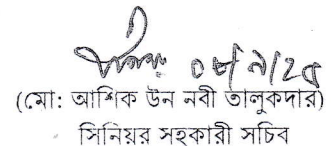 ০৮/৭/২৫
(মো: আশিক উন নবী তালুকদার)
সিনিয়র সহকারী সচিব